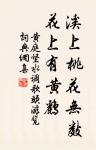 溪上桃花無數
花上有黃鸝
黃庭堅水調歌頭游覽
詞典網集